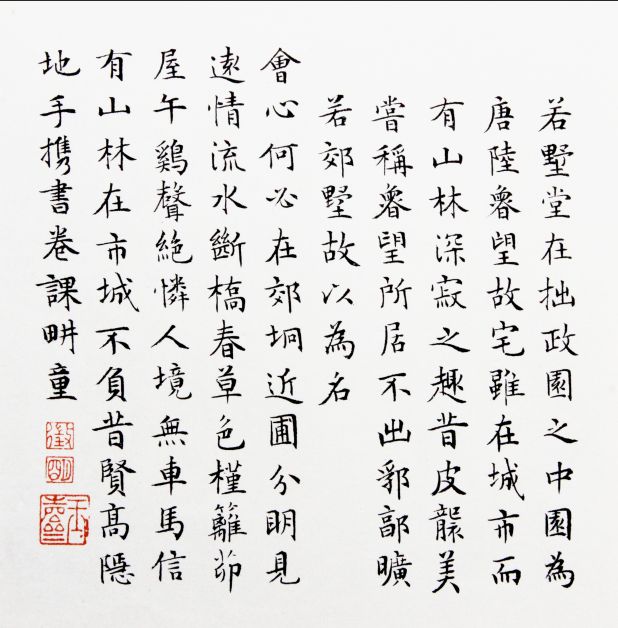 若墅堂在拙政園之中園為
唐陸魯望故宅雖在城市而
有山林深寂之趣昔皮襲美
嘗稱魯望所居不出郛郭曠
若郊墅故以為名
會心何必在郊坰近圃分明見
遠情流水斷槗春草色槿籬茆
屋午鷄聲絕憐人境無車馬信
有山林在市城不負昔賢髙隱
地手携書卷課畊童
徵
明